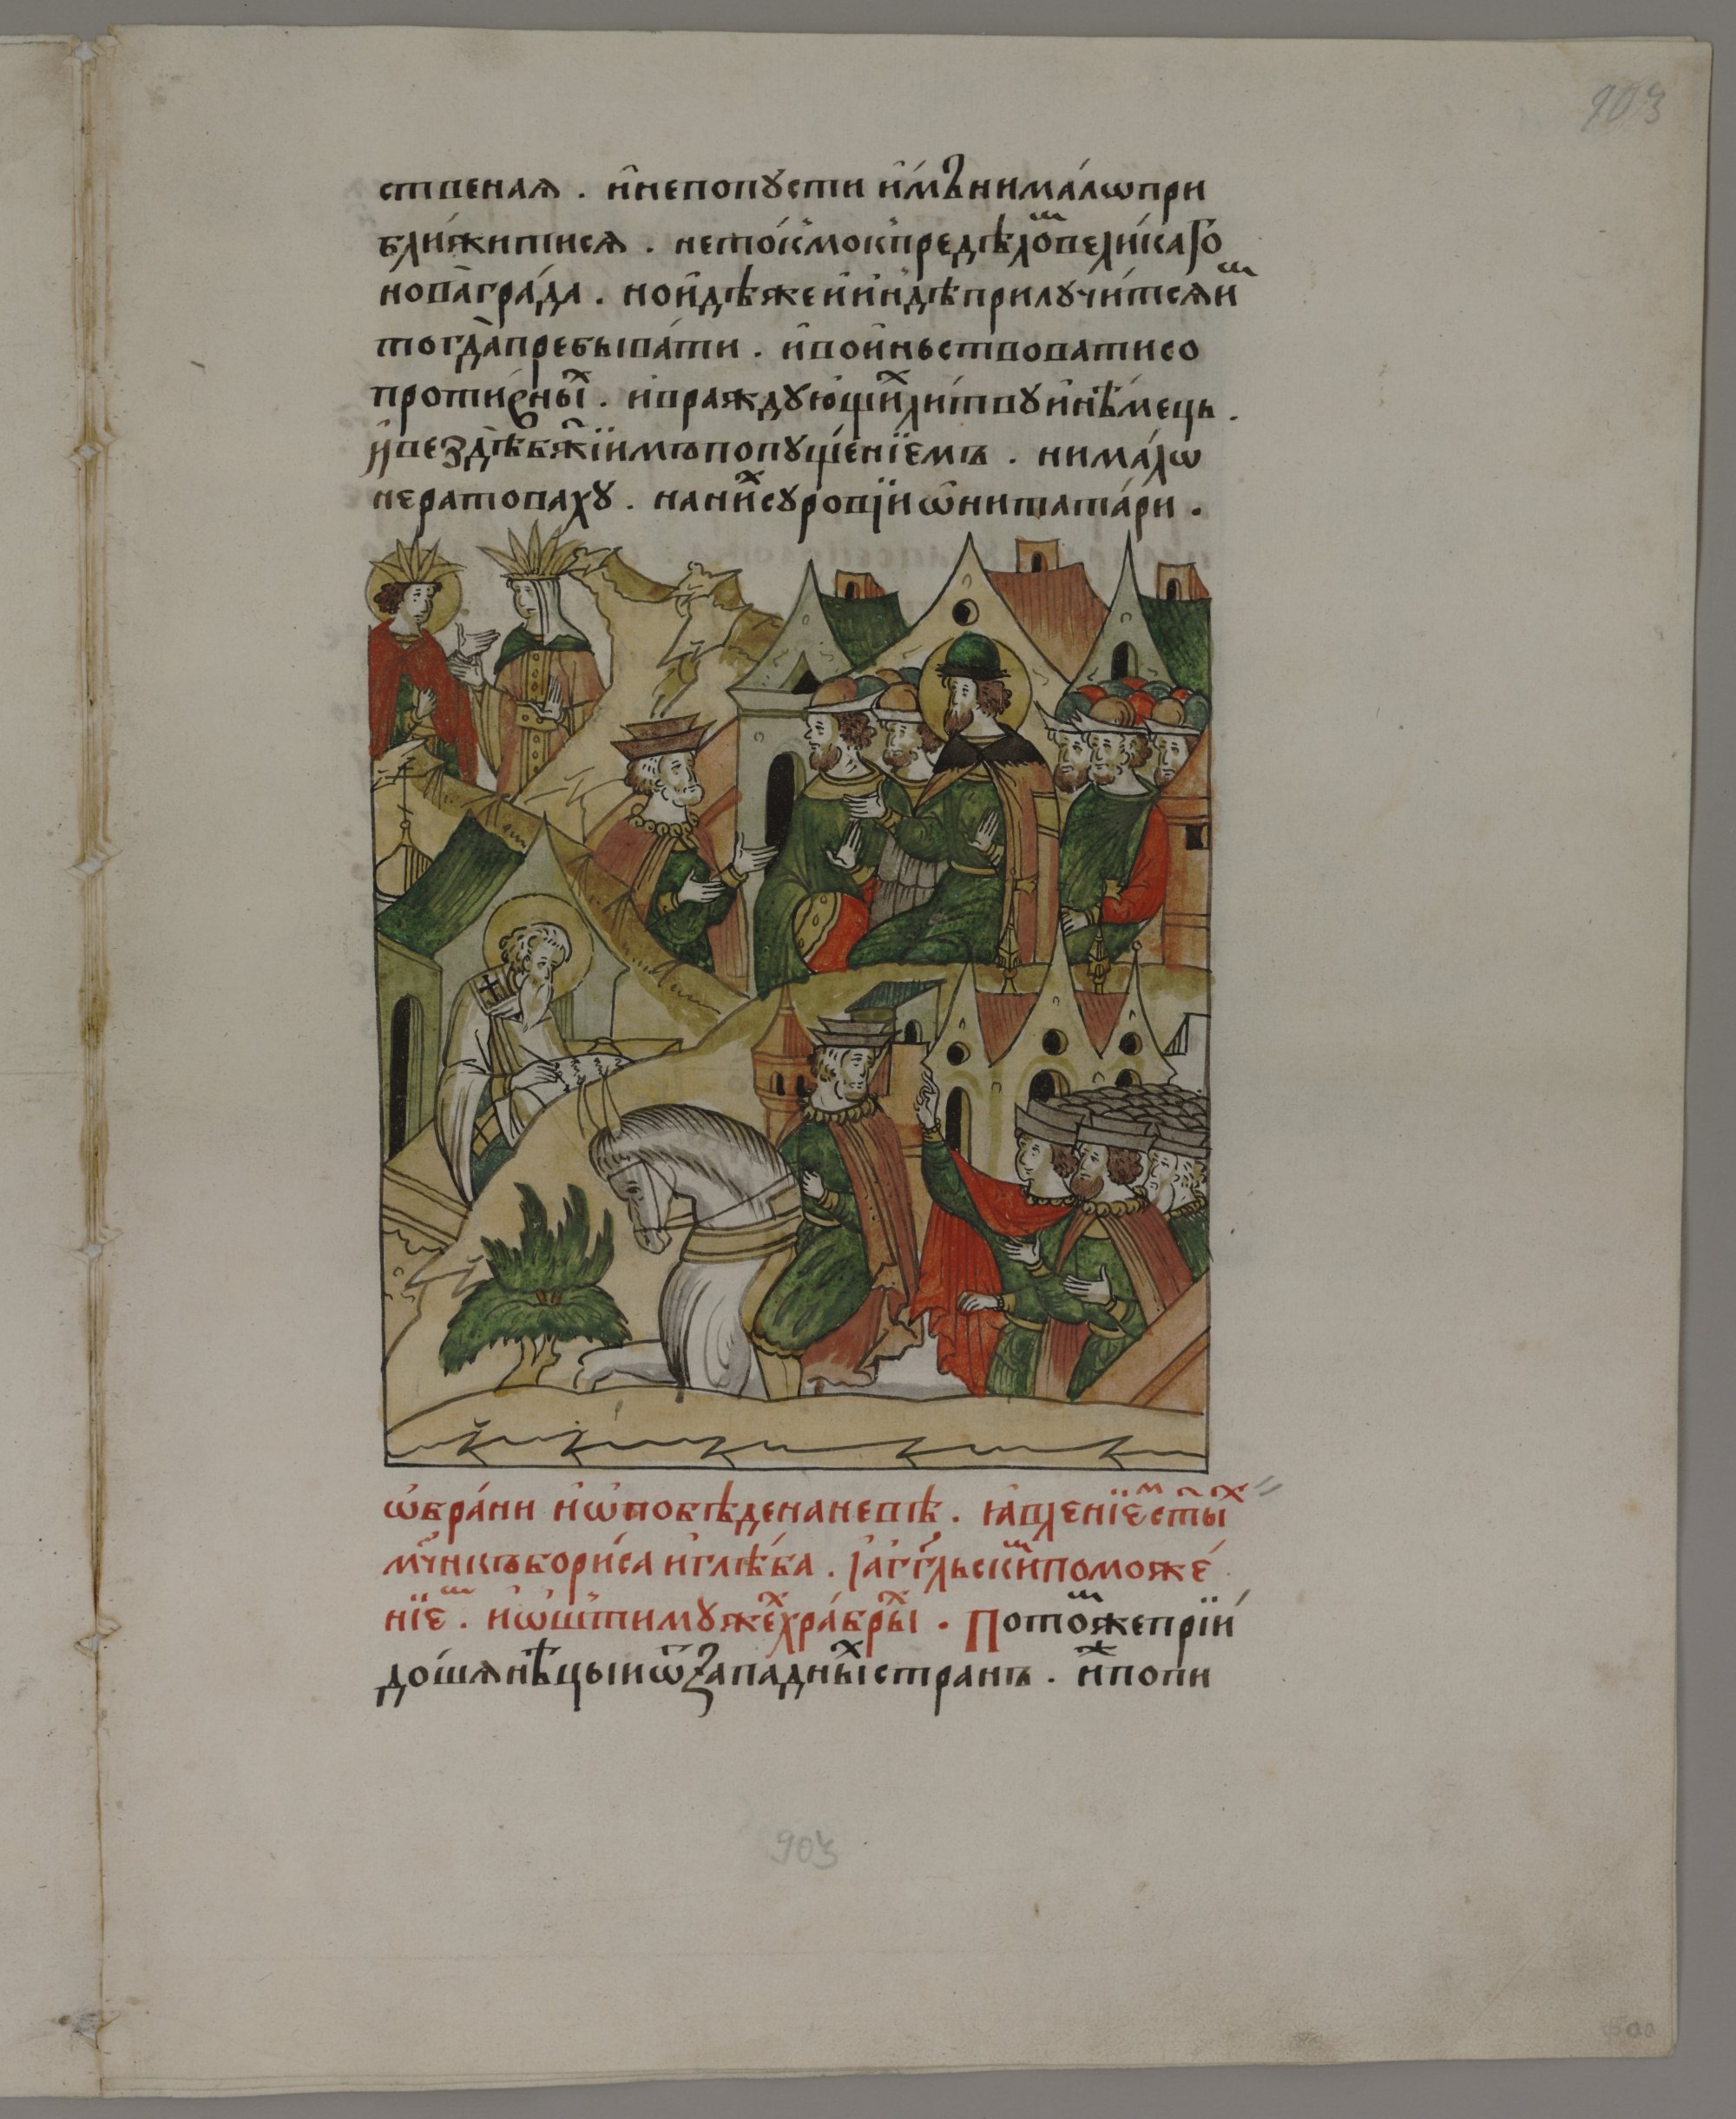 903
ственая . и҆ непопусти и҆мъ нима́лѡ при
бли́житися . нето́кмо к̾предѣлѡ͏ⷨ вели́каго
но́ва гра́да . но и҆дѣже и҆ и҆ндѣ прилучи́тся и҆ⷨ
тогда̀ пребыва́ти . и҆ вои́ньствовати со
проти́вныⷯ . и҆ враждую́щиⷯ литву и҆ нѣ́мець .
и҆ вездѣ бж҃їимъ попуще́нїемъ . нима́лѡ
нератоваху . на ниⷯ суровїи ѡ҆ни тата́ри .
ѡ҆бра́ни и҆ ѡ҆ побѣде на невѣ . и҆ ꙗ҆вле́нїеⷨ ст҃ыⷯ
мч҃нкъ бори́са и҆ глѣ́ба . и҆ а҆гг҃льскиⷨ поможе́
нїеⷨ . и҆ ѡ҆ шти мужеⷯ хра́брыⷯ . Потоⷨ же прїи
до́ша нѣ́цыи ѿ западныⷯ странъ . и҆ⷤ попи
903